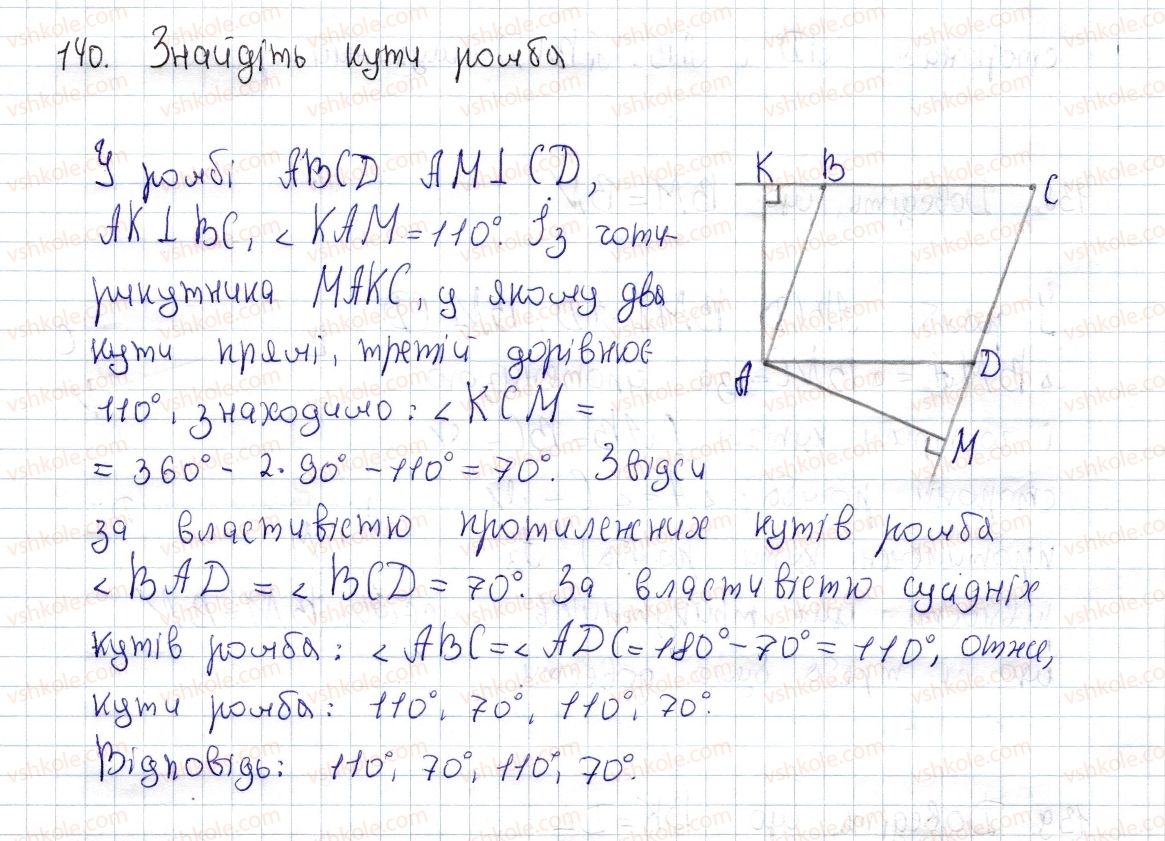 140. Знайдіть кути ромба
У ромбі ABCD AM⊥CD,
AK⊥BC, <KAM=110°. Із чоти-
рикутника MAKC, у якому два
кути прямі, третій дорівнює
110°, знаходимо: <KCM=
=360°-2·90°-110°=70°. Звідси
за властивістю протилежних кутів ромба
<BAD=<BCD=70°. За властивістю сусідніх
кутів ромба: <ABC=<ADC=180°-70°=110°, отже,
кути ромба: 110°, 70°, 110°, 70°.
Відповідь: 110°, 70°, 110°, 70°.
K B C
A D
M
vshkole.com